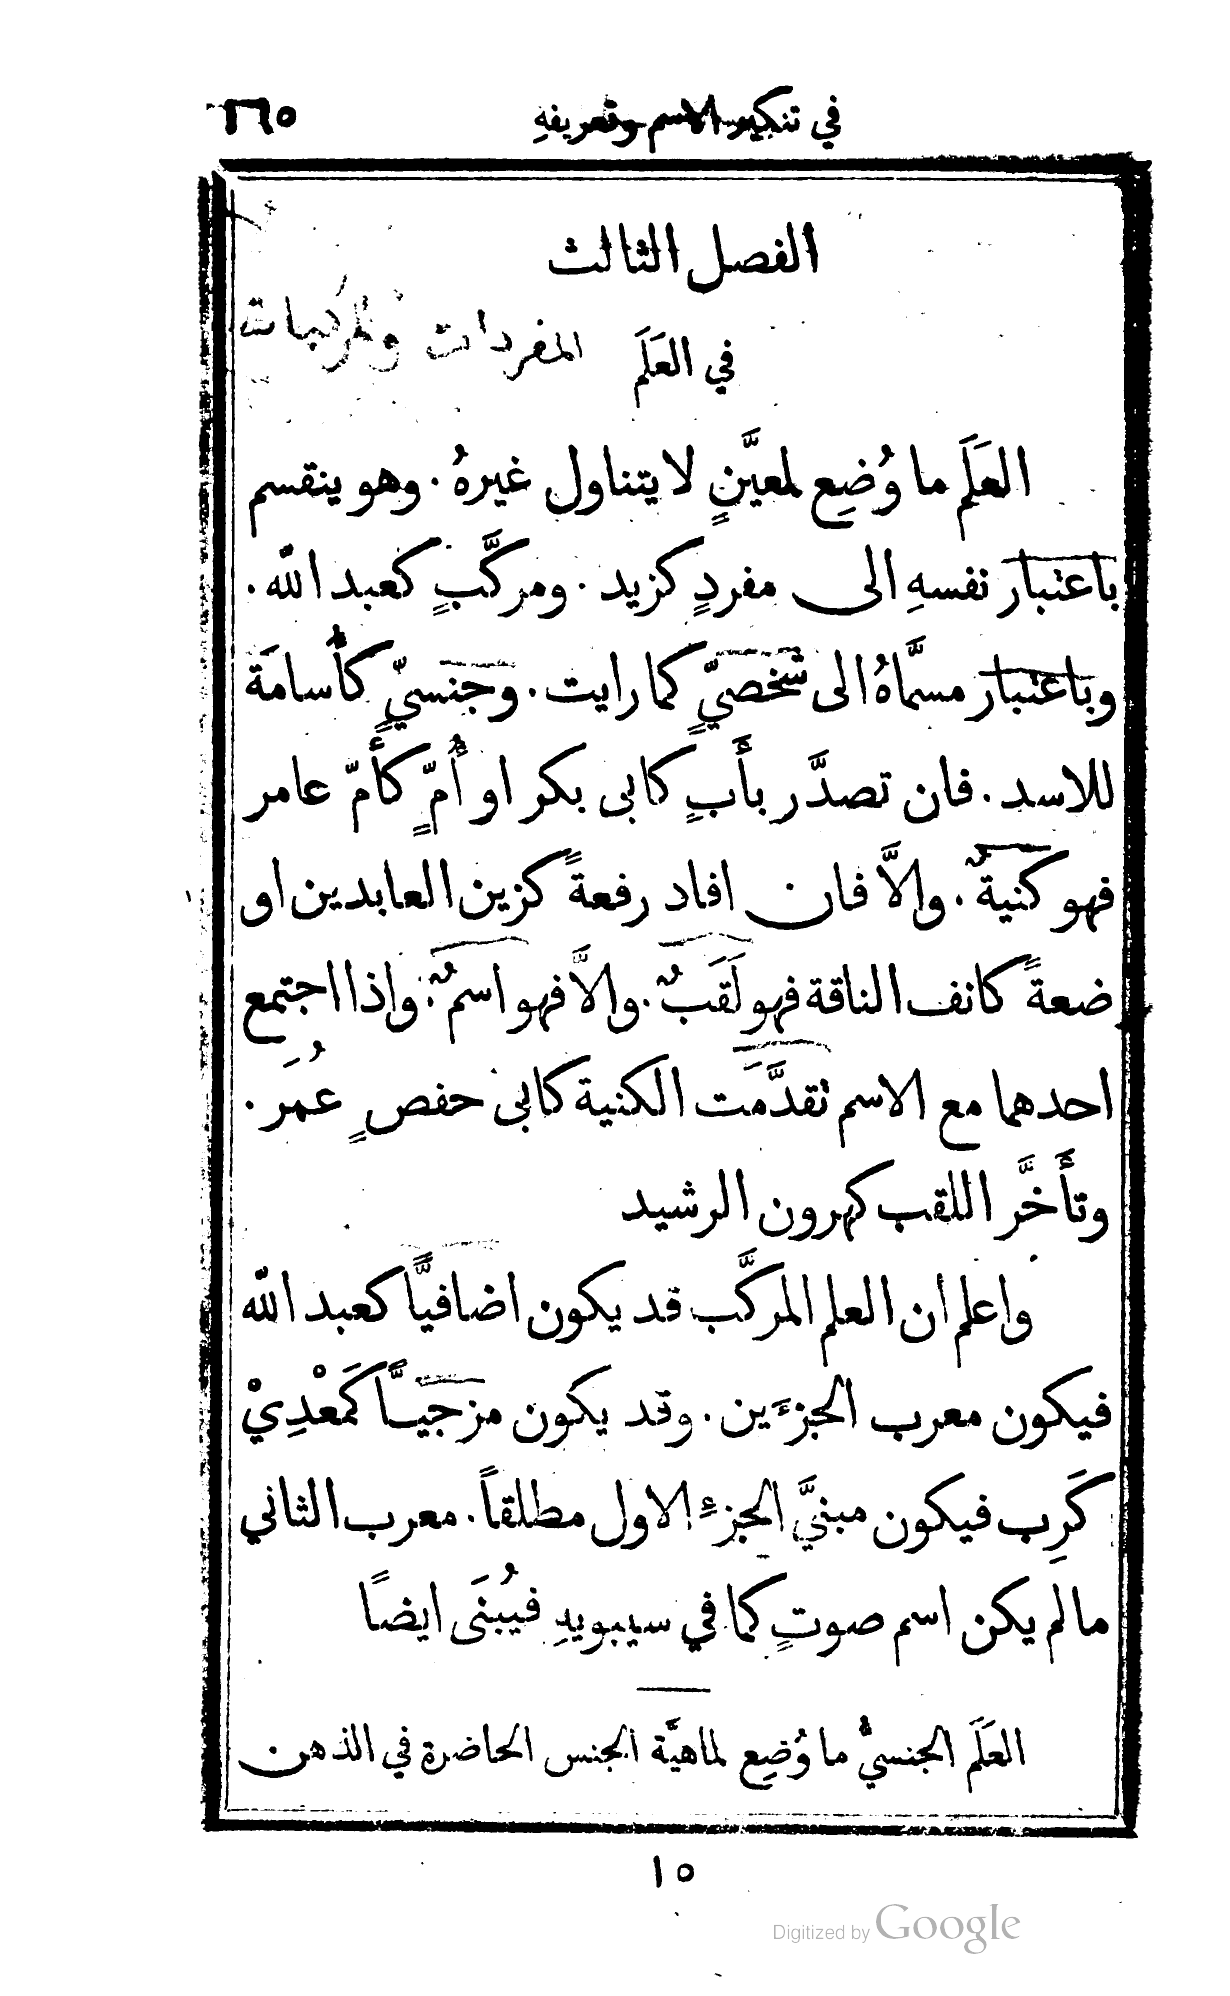 في تنكير الاسم وتعريفهِ ١٦٥
الفصل الثالث
المفردات والمركبات
في العَلَم
العَلَم ما وُضِع لمعيَّنٍ لا يتناول غيرهُ ٠ وهو ينقسم
باعتبار نفسهِ الى مفردٍ كزيد ٠ ومركَّبٍ كعبد الله ٠
وباعتبار مسمَّاهُ الى شخصيٍّ كما رايت ٠ وجنسيٍّ كأُسامَة
للاسد ٠ فان تصدَّر بأَبٍ كابي بكر او أُمٍّ كأُمّ عامر
فهو كنيةٌ ٠ والاَّ فان افاد رفعةً كزين العابدين او
ضعةً كانف الناقة فهو لَقَبٌ ٠ والاَّ فهو اسمٌ ٠ واذا اجتمع
احدهما مع الاسم تقدَّمَت الكنية كابي حفصٍ عُمَر ٠
وتأَخَّر اللقب كهرون الرشيد
واعلم ان العلم المركَّب قد يكون اضافيًّا كعبد الله
فيكون معرب الجزءَين ٠ وقد يكون مزجيًّا كَمَعْدِيْ
كَرِب فيكون مبنيَّ الجزءِ الاول مطلقاً ٠ معرب الثاني
ما لم يكن اسم صوتٍ كما في سيبويهِ فيُبنَى ايضًا
العَلَم الجنسيُّ ما وُضِع لماهيَّة الجنس الحاضرة في الذهن
١٥
Digitized by Google